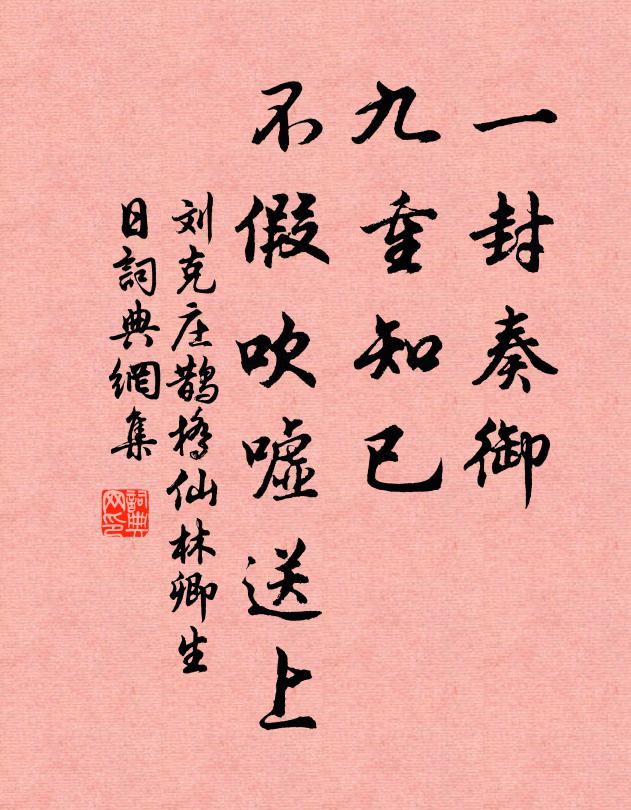 一封奏御
九重知己
不假吹嘘送上
刘克庄鹊桥仙林卿生
日詞典網集
詞典网印